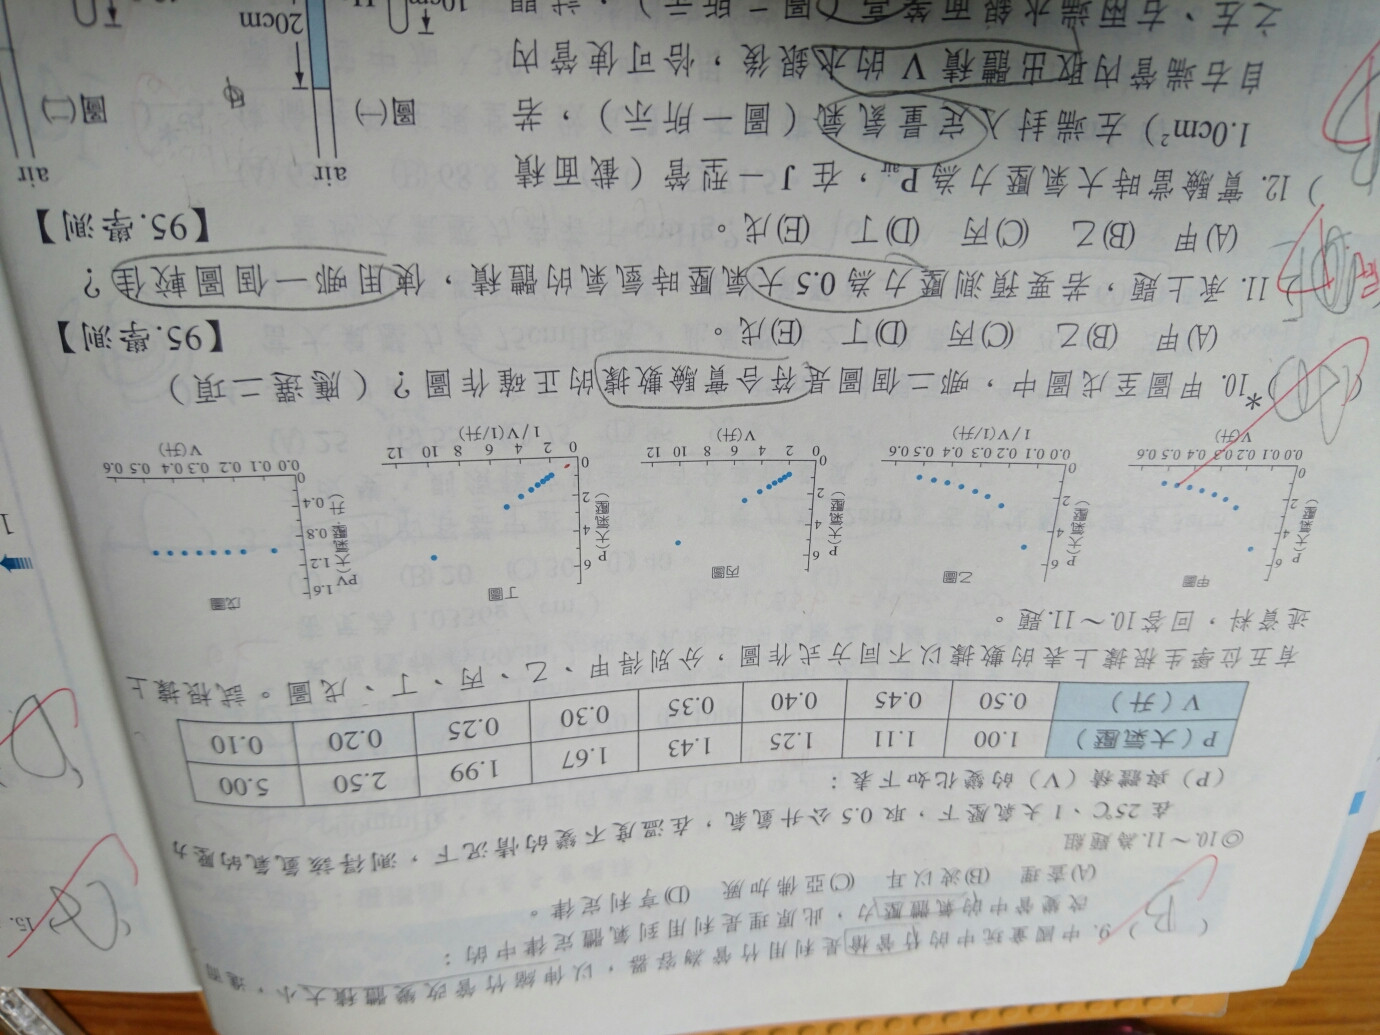 ( B ) 9. 中國童玩中的竹管槍是利用竹管為容器，以伸縮竹管改變體積大小，進而
改變管中的氣體壓力，此原理是利用到氣體定律中的：
(A)查理 (B)波以耳 (C)亞佛加厥 (D)亨利定律。
◎10.～11.為題組
在25℃、1大氣壓下，取0.5公升氫氣，在溫度不變的情況下，測得該氫氣的壓力
(P) 與體積 (V) 的變化如下表：
P (大氣壓) 1.00 1.11 1.25 1.43 1.67 1.99 2.50 5.00
V (升) 0.50 0.45 0.40 0.35 0.30 0.25 0.20 0.10
有五位學生根據上表的數據以不同方式作圖，分別得甲、乙、丙、丁、戊圖。試根據上
述資料，回答10.～11.題。
甲圖 乙圖 丙圖 丁圖 戊圖
P(大氣壓) 6 4 2 0
0.0 0.1 0.2 0.3 0.4 0.5 0.6
V(升)
P(大氣壓) 6 4 2 0
0.0 0.1 0.2 0.3 0.4 0.5 0.6
1/V(1/升)
P(大氣壓) 6 4 2 0
0 2 4 6 8 10 12
V(升)
P(大氣壓) 6 4 2 0
0 2 4 6 8 10 12
1/V(1/升)
PV(大氣壓·升) 1.6 1.2 0.8 0.4 0
0.0 0.1 0.2 0.3 0.4 0.5 0.6
V(升)
*10. 甲圖至戊圖中，哪二個圖是符合實驗數據的正確作圖？(應選二項)
(A)甲 (B)乙 (C)丙 (D)丁 (E)戊。 【95.學測】
11. 承上題，若要預測壓力為0.5大氣壓時氫氣的體積，使用哪一個圖較佳？
(A)甲 (B)乙 (C)丙 (D)丁 (E)戊。 【95.學測】
) 12. 實驗當時大氣壓力為Pair，在J－型管（截面積
1.0cm²）左端封入定量氦氣（圖一所示），若
自右端管內取出體積V的水銀後，恰可使管內
之左、右兩端水銀面等高（圖二所示），試問
air
air
圖(一)
圖(二)
20cm
10cm
15.
1